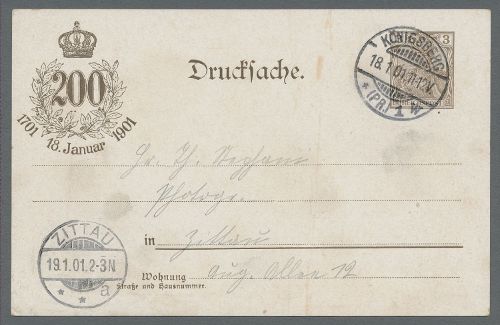 200
1701 18. Januar 1901
Drucksache.
3
REICHSPOST
KÖNIGSBERG
18.1.01.11-12V.
* (PR.) 1
Hr. Th.
Photogr.
in Zittau
Wohnung Aug. Allee 12
Straße und Hausnummer.
ZITTAU
19.1.01.2-3N
* * a